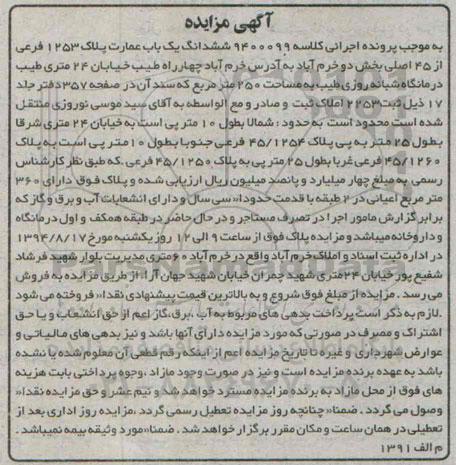 آگهی مزایده
به موجب پرونده اجرائی کلاسه ۹۴۰۰۰۹۹ ششدانگ یک باب عمارت پلاک ۱۲۵۳ فرعی
از ۴۵ اصلی بخش دو خرم آباد به آدرس خرم آباد چهارراه طیب خیابان ۲۴ متری طیب
درمانگاه شبانه روزی طیب به مساحت ۲۵۰ متر مربع که سند آن در صفحه ۳۵۷ دفتر جلد
۱۷ ذیل ثبت ۲۲۵۳ املاک ثبت و صادر و مع الواسطه به آقای سید موسی نوروزی منتقل
شده است محدود است به حدود: شمالا بطول ۱۰ متر پی است به خیابان ۲۴ متری شرقا
بطول ۲۵ متر به پی پلاک ۴۵/۱۲۵۴ فرعی جنوبا بطول ۱۰ متر پی است به پلاک
۴۵/۱۲۶۰ فرعی غربا بطول ۲۵ متر پی به پلاک ۴۵/۱۲۵۰ فرعی .که طبق نظر کارشناس
رسمی به مبلغ چهار میلیارد و پانصد میلیون ریال ارزیابی شده و پلاک فوق دارای ۳۶۰
متر مربع اعیانی در ۲ طبقه با قدمت حدودا« سی سال و دارای انشعابات آب و برق و گاز که
برابر گزارش مامور اجرا در تصرف مستاجر و در حال حاضر در طبقه همکف و اول درمانگاه
و داروخانه میباشد و مزایده پلاک فوق از ساعت ۹ الی ۱۲ روز یکشنبه مورخ ۱۳۹۴/۸/۱۷
در اداره ثبت اسناد و املاک خرم آباد واقع در خرم آباد ۶۰ متری مدیریت بلوار شهید فرشاد
شفیع پور خیابان ۲۴ متری شهید چمران خیابان شهید جهان آرا. از طریق مزایده به فروش
می رسد . مزایده از مبلغ فوق شروع و به بالاترین قیمت پیشنهادی نقدا« فروخته می شود
.لازم به ذکر است پرداخت بدهی های مربوط به آب ،برق،گاز اعم از حق انشعاب و یا حق
اشتراک و مصرف در صورتی که مورد مزایده دارای آنها باشد و نیز بدهی های مالیاتی و
عوارض شهرداری و غیره تا تاریخ مزایده اعم از اینکه رقم قطعی آن معلوم شده یا نشده
باشد به عهده برنده مزایده است و نیز در صورت وجود مازاد ،وجوه پرداختی بابت هزینه
های فوق از محل مازاد به برنده مزایده مسترد خواهد شد و نیم عشر و حق مزایده نقدا«
وصول می گردد . ضمنا« چنانچه روز مزایده تعطیل رسمی گردد ،مزایده روز اداری بعد از
تعطیلی در همان ساعت و مکان مقرر برگزار خواهد شد . ضمنا« مورد وثیقه بیمه نمیباشد .
م الف ۱۳۹۱